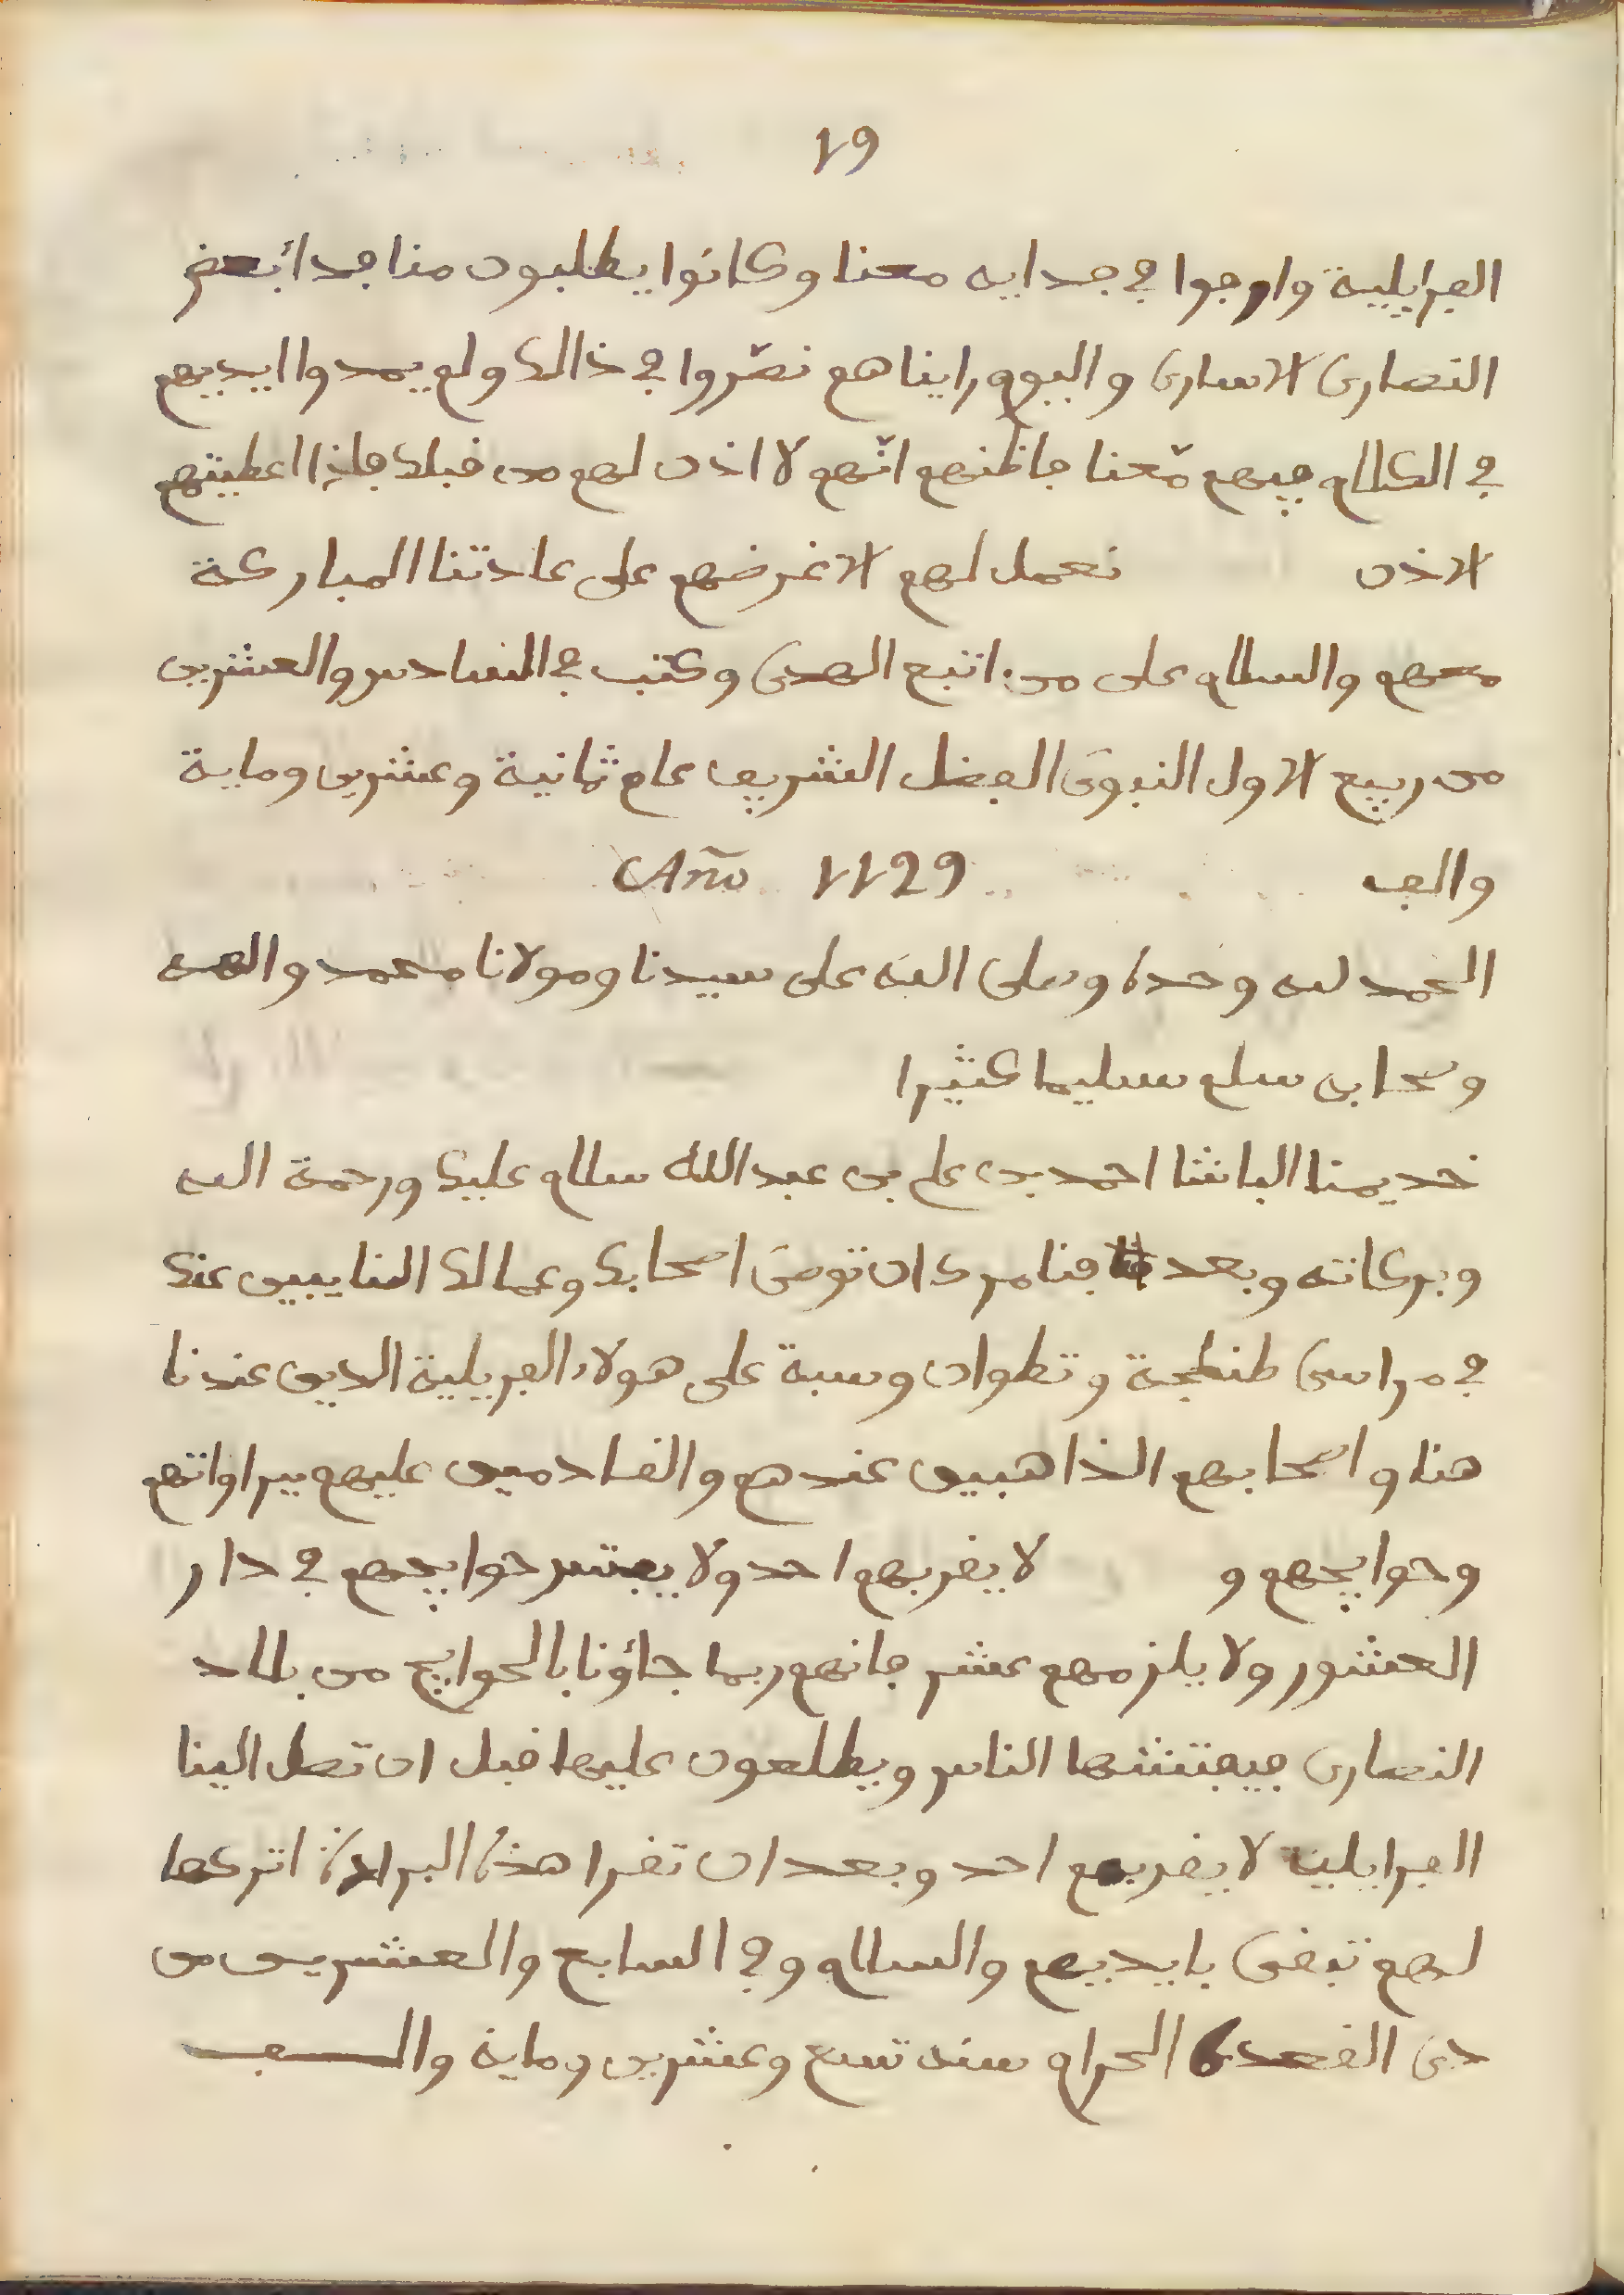 19
الفرايلية واوجوا في جدايه معنا وكانوا يطلبون منا فدا بعض
النصارى الاسارى واليوم رايناهم نصّروا في ذالك ولم يمدوا ايديهم
في الكلام فيهم معنا فاظنهم انّهم لا اذن لهم من قبلك فاذا اعطيتهم
الاذن نعمل لهم الاغرضهم على عادتنا المباركة
معهم والسلام على من اتبع الهدى وكتب في السادس والعشرين
من ربيع الاول النبوي الفضل الشريف عام ثمانية وعشرين وماية
والف 1129 Año
الحمد لله وحده وصلى الله على سيدنا ومولانا محمد واله
وصحابه سلم سليما كثيرا
خديمنا الباشا احمد بن علي بن عبد الله سلام عليك ورحمة الله
وبركاته وبعد فنامرك ان توصى اصحابك وعمالك النايبين عنك
في مراسى طنطجة وتطوان وسبة على هولاء الفريلية الدين عندنا
هنا واصحابهم الذاهبين عندهم والقادمين عليهم ببراواتهم
وحوايجهم و لا يقربهم احد ولا يفتش حوايجهم في دار
العشور ولا يلزمهم عشر فانهم ربما جاؤنا بالحوايج من بلاد
النصارى فيفتشها الناس ويطلعون عليها قبل ان تصل الينا
الفرايلية لا يقربهم احد وبعد ان تقرا هذه البراءة اتركها
لهم تبقى بايديهم والسلام وفي السابع والعشرين من
دى القعدة الحرام سنه تسع وعشرين وماية والف